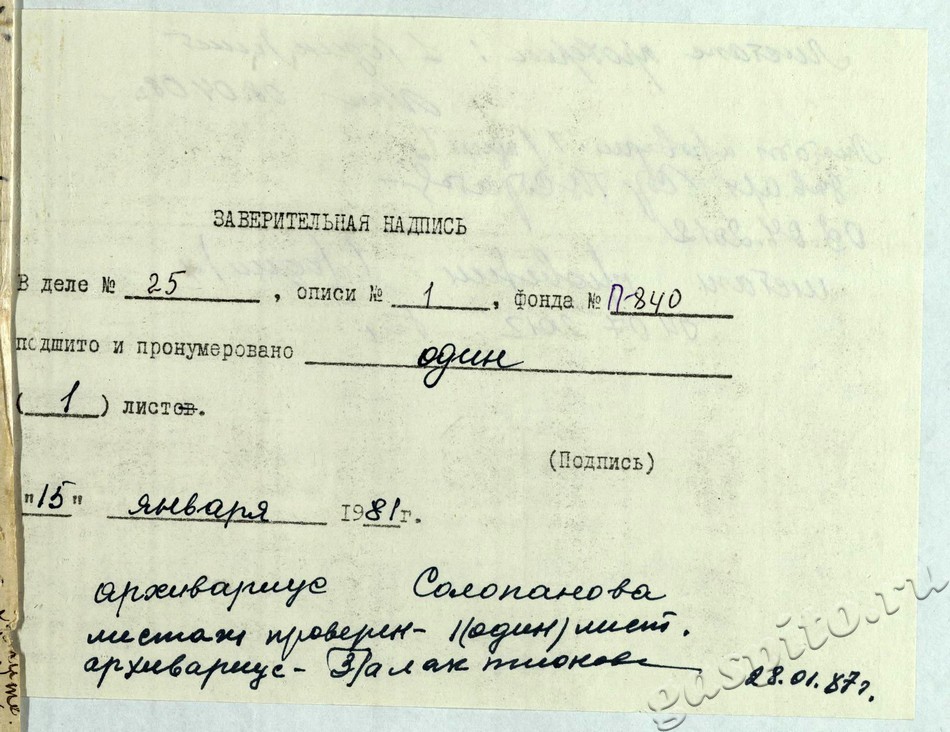 ЗАВЕРИТЕЛЬНАЯ НАДПИСЬ
В деле № 25, описи № 1, фонда № П-840
подшито и пронумеровано один
(1) листов.
(Подпись)
"15" января 1981г.
архивариус Солопанова
листаж проверен - 1(один) лист.
архивариус -
28.01.87г.
gasnito.ru